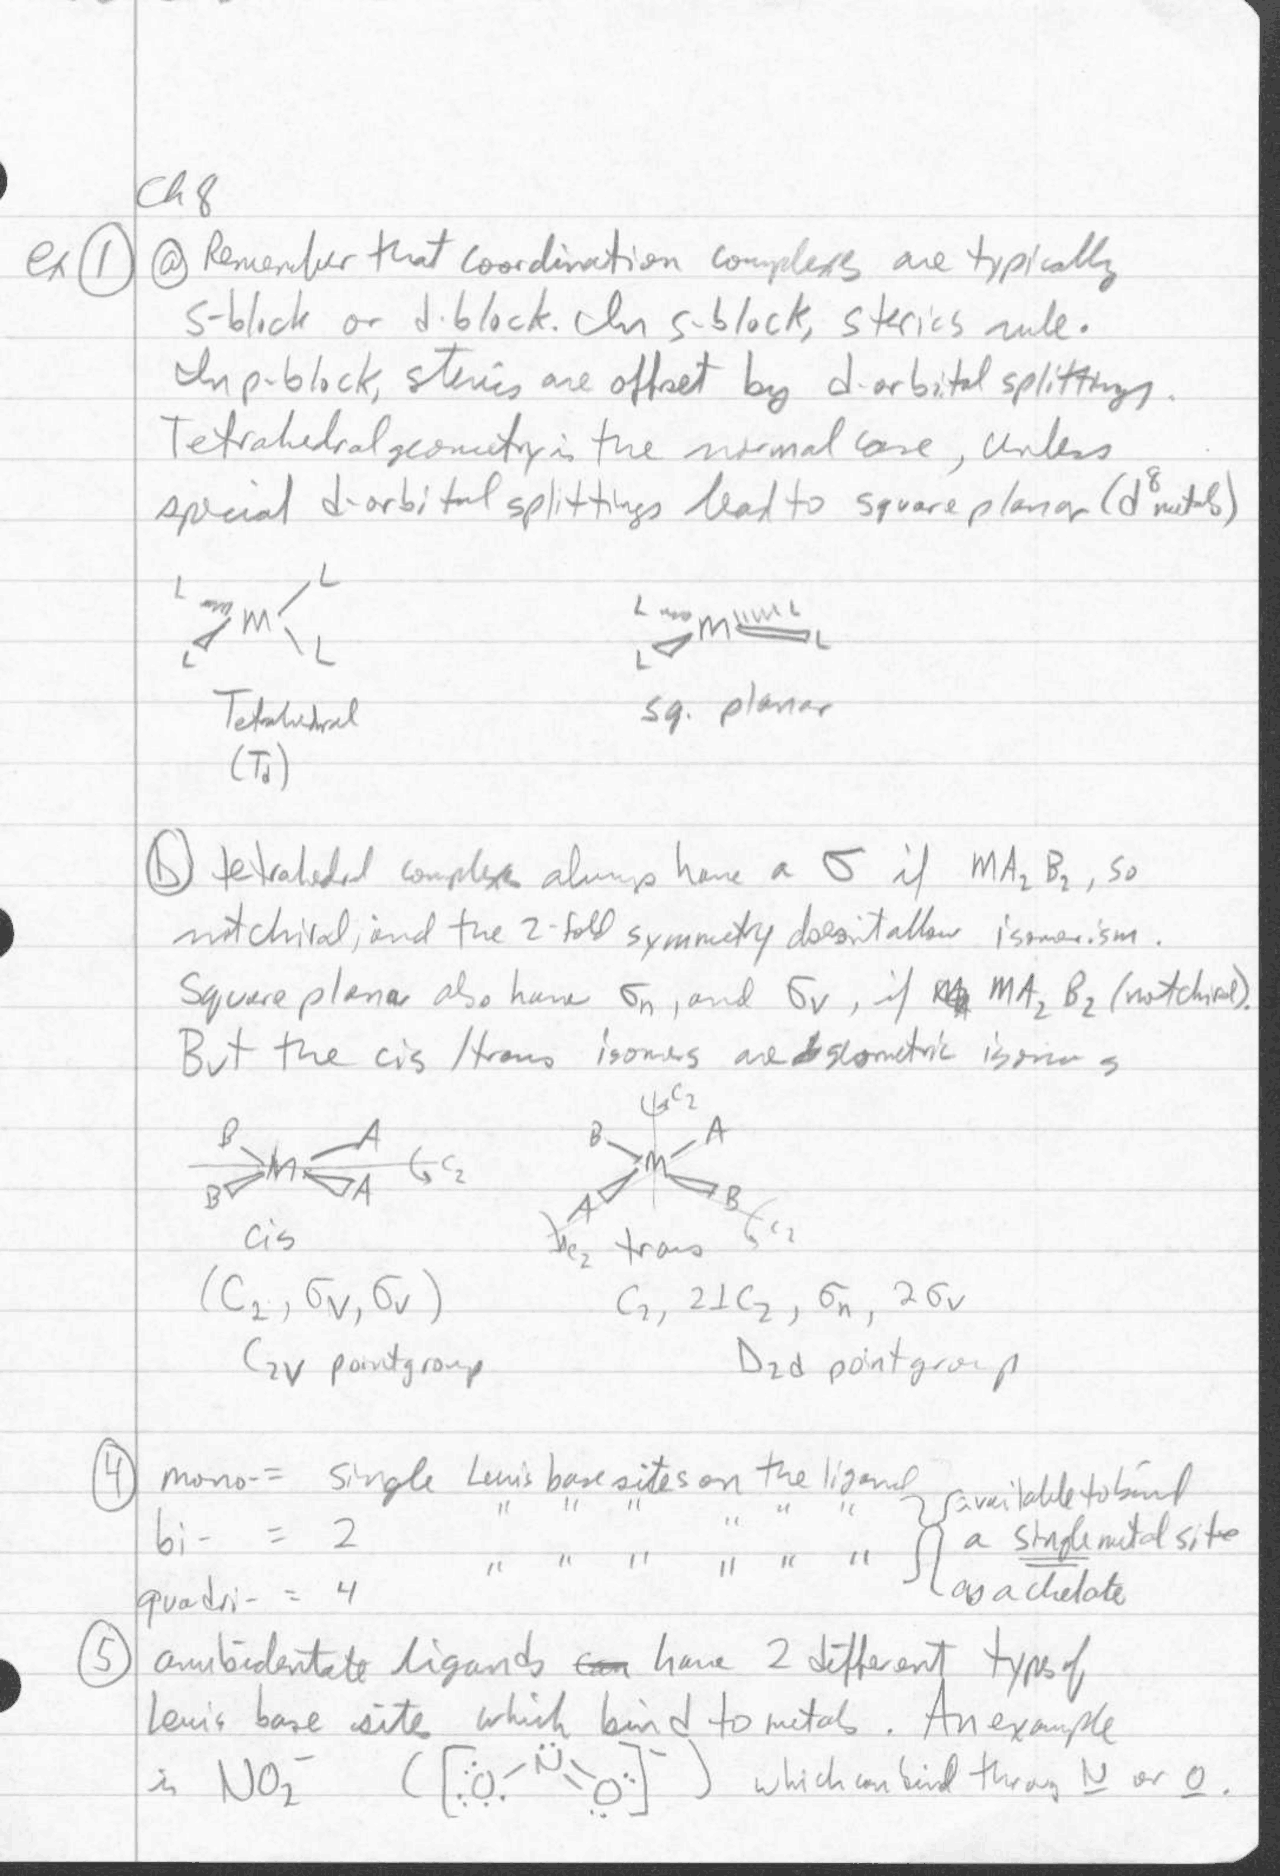 Ch 8
ex ① ⓐ Remember that coordination complexes are typically
s-block or d-block. In s-block, sterics rule.
In p-block, sterics are offset by d-orbital splittings.
Tetrahedral geometry is the normal case, unless
special d-orbital splittings lead to square planar (d⁸ metals)
L L L L M
L L L L M
Tetrahedral
sq. planar
(Td)
ⓑ tetrahedral complexes always have a σ if MA₂B₂, so
not chiral, and the 2-fold symmetry doesn't allow isomerism.
Square planar also have σh, and σv, if MA₂B₂ (not chiral).
But the cis/trans isomers are geometric isomers
B B M A A C₂
C₂ B A M A B C₂ C₂
cis
trans
(C₂, σv, σv)
C₂, 2⊥C₂, σh, 2σv
C₂v point group
D₂d point group
④ mono- = single Lewis base sites on the ligand } available to bind
bi- = 2 " " " " " " a single metal site
quadri- = 4 " " " " " " as a chelate
⑤ ambidentate ligands have 2 different types of
Lewis base sites which bind to metals. An example
is NO₂⁻ ([:O-N=O:]⁻) which can bind through N or O.